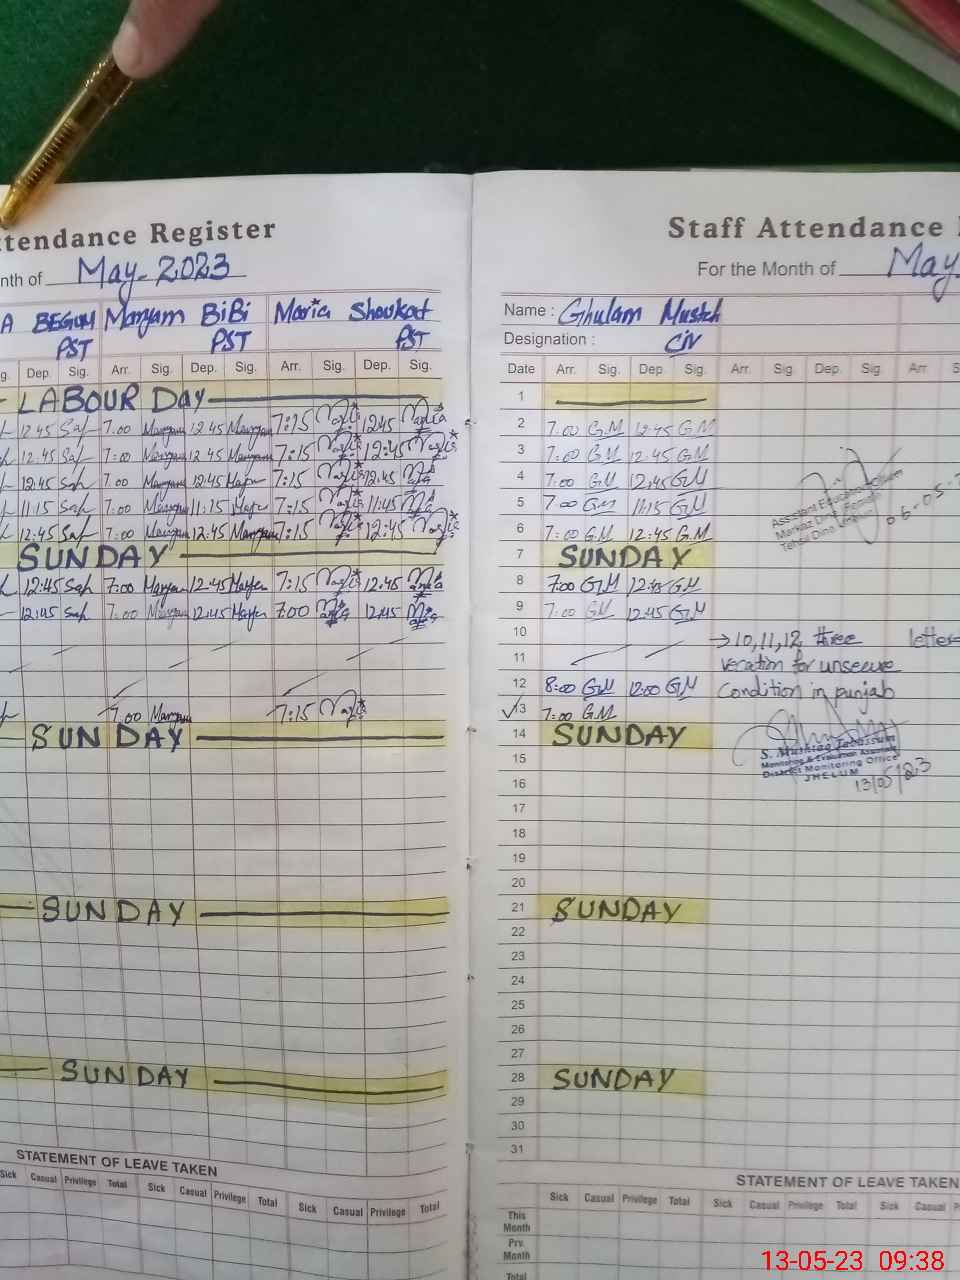 ttendance Register
nth of May-2023
A BEGUM Maryam BiBi Maria Shoukat
PST PST PST
g. Dep. Sig. Arr. Sig. Dep. Sig. Arr. Sig. Dep. Sig.
LABOUR Day
12.45 7.00 Maryam 12.45 Maryam 7:15 12.45
12.45 7:00 Maryam 12.45 Maryam 7:15 12:45
12:45 7.00 Maryam 12:45 7:15 12.45
11:15 7:00 Maryam 11:15 7:15 11:45
12:45 7:00 Maryam 12.45 Maryam 7:15 12:45
SUNDAY
12:45 7:00 Maryam 12.45 7:15 12.45
12:45 7:00 Maryam 12:45 7:00 12:45
7.00 Maryam 7:15
SUNDAY
SUNDAY
SUNDAY
STATEMENT OF LEAVE TAKEN
Sick Casual Privilege Total Sick Casual Privilege Total Sick Casual Privilege Total
Staff Attendance
For the Month of May
Name : Ghulam
Designation :
Date Arr. Sig. Dep. Sig. Arr. Sig. Dep. Sig. Arr
1
2 7.00 G.M 12:45 G.M
3 7:00 GM 12.45 G.M
4 7:00 G.M 12:45 GM
5 7:00 GM 11:15 GM
6 7:00 G.M 12:45 G.M
7 SUNDAY
8 7:00 GM 12:45 G.M
9 7:00 GM 12:45 GM
10
11
12 8:00 GM 12:00 GM
13 7:00 G.M
14 SUNDAY
15
16
17
18
19
20
21 SUNDAY
22
23
24
25
26
27
28 SUNDAY
29
30
31
Assistant Education Officer
06-05-
→10,11,12 three letters
vecation for unsecure
Condition in punjab
S. Mushtaq Tabassum
Monitoring & Evaluation Assistant
District Monitoring Office
JHELUM
13/05/23
STATEMENT OF LEAVE TAKEN
Sick Casual Privilege Total Sick Casual Privilege Total Sick Casual P
This
Month
Prv.
Month
Total
13-05-23 09:38